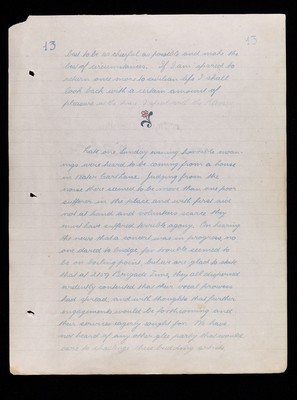 13
13
but to be as cheerful as possible and make the
best of circumstances. If I am spared to
return once more to civilian life I shall
look back with a certain amount of
pleasure
Late one Sunday evening horrible moan-
ings were heard to be coming from a house
in Lane. Judging from the
noise there seemed to be more than one poor
sufferer in the place and with first aid
not at hand and volunteers scarce they
must have suffered terrible agony. On hearing
the news that a was in progress, no
one dared to budge for trouble seemed to
be on boiling point but we are glad to state
that at Brigade time, they all dispersed
evidently contented that their vocal prowess
had spread, and with thoughts that further
engagements would be forthcoming and
their services eagerly sought for. We have
not heard of any other glee party that would
care to challenge these budding